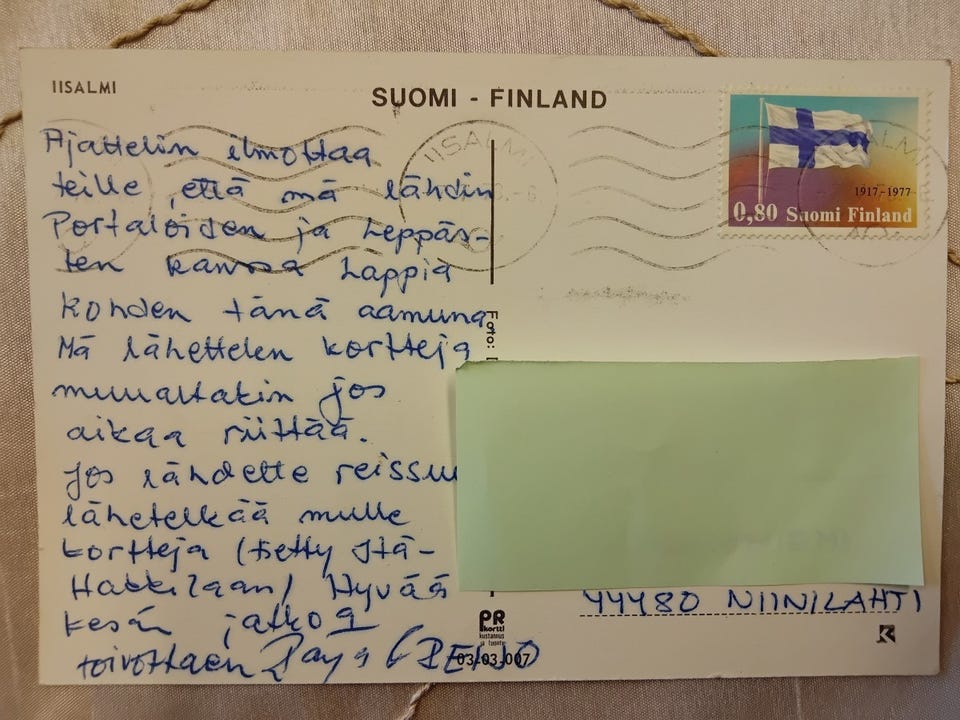 IISALMI
SUOMI - FINLAND
Ajattelin ilmottaa
teille, että mä lähdin
Portaloiden ja Leppäs-
ten kanssa Lappia
kohden tänä aamuna
Mä lähettelen kortteja
muualtakin jos
aikaa riittää.
Jos lähdette reissuu
lähetelkää mulle
kortteja (tietty Itä-
Hakkilaan) Hyvää
kesän jatkoa
toivottaen
IISALMI
1917-1977
0,80 Suomi Finland
Foto:
44480 NIINILAHTI
PR
kortti
kustannus
ja tuonti
03-03-007